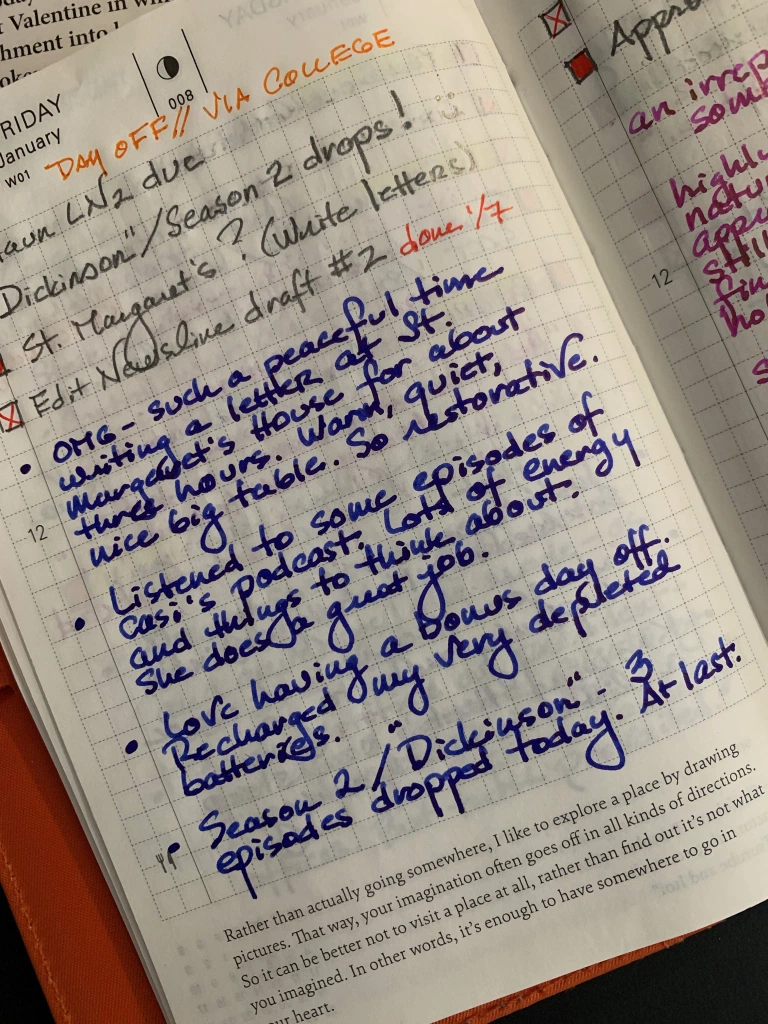 Valentine in
hment into
RIDAY
January
W01
008
DAY OFF // VIA COLLEGE
LN2 due
Dickinson"/Season 2 drops!
St. Margaret's? (Write letters)
Edit Newsline draft #2 done 1/7
• OMG - such a peaceful time
writing a letter at St.
Margaret's House for about
three hours. Warm, quiet,
nice big table. So restorative.
12
• Listened to some episodes of
Casi's podcast. Lots of energy
and things to think about.
She does a great job.
• Love having a bonus day off.
Recharged my very depleted
batteries.
• Season 2 / "Dickinson" - 3
episodes dropped today. At last.
Rather than actually going somewhere, I like to explore a place by drawing
pictures. That way, your imagination often goes off in all kinds of directions.
So it can be better not to visit a place at all, rather than find out it's not what
you imagined. In other words, it's enough to have somewhere to go in
our heart.
Appro
an irrep
som
highl
natu
appr
still
12